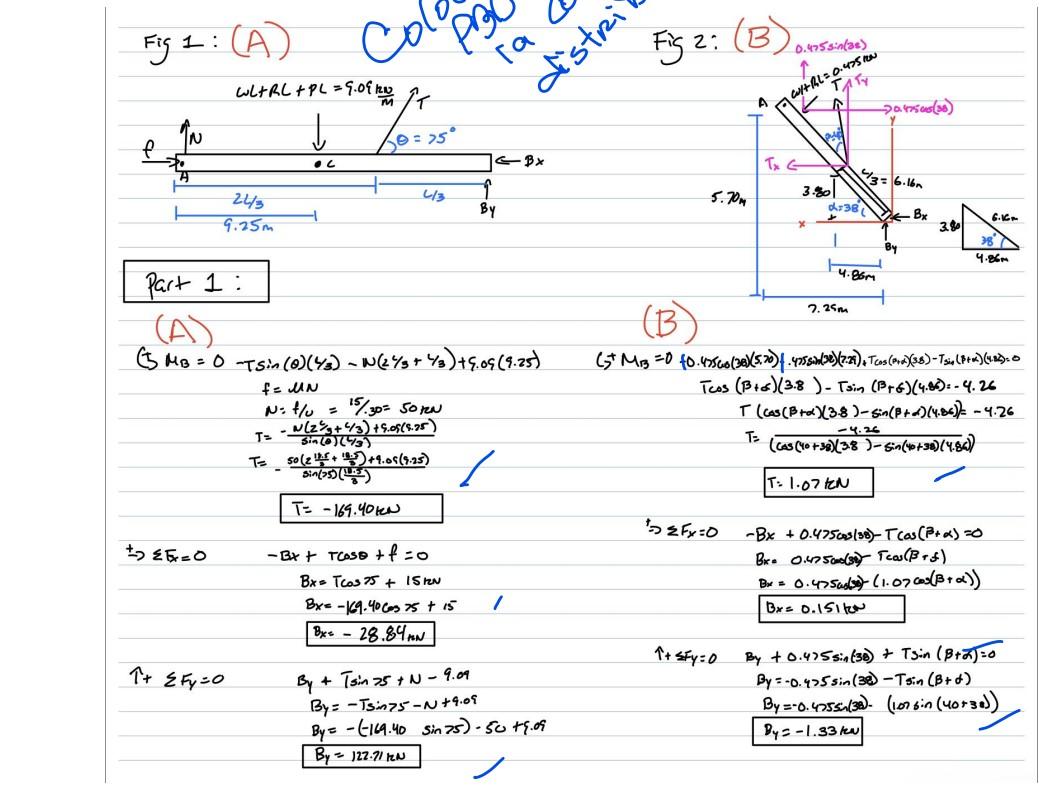 Fig 1 : (A)
Fig 2: (B)
WL+RL+PL = 9.09 kN/m
T
N
θ = 75°
f
A
C
Bx
By
2L/3
L/3
9.25m
0.475sin(38)
WL+RL = 0.475kN
T
Ty
0.475cos(38)
A
y
Tx
L/3 = 6.16m
3.80
5.70m
α=38°
x
Bx
By
4.86m
7.29m
3.80
6.16m
38°
4.86m
Part 1 :
(A)
MB = 0 -Tsin(θ)(L/3) - N(2L/3 + L/3) + 9.09(9.25)
f = μN
N = f/μ = 15/.30 = 50kN
T = - -N(2L/3 + L/3) + 9.09(9.25) / sin(θ)(L/3)
T = - 50(2 18.5/3 + 18.5/3) + 9.09(9.25) / sin(75)(18.5/3)
T = -169.40kN
+→ ΣFx=0 -Bx + Tcosθ + f = 0
Bx = Tcos75 + 15kN
Bx = -169.40cos 75 + 15
Bx = - 28.84kN
↑+ ΣFy=0 By + Tsin75 + N - 9.09
By = -Tsin75 - N + 9.09
By = -(-169.40 sin75) - 50 + 9.09
By = 122.71kN
(B)
MB=0 +0.475cos(38)(5.70)+.475sin(38)(7.29)+Tcos(β+α)(3.8)-Tsin(β+α)(4.86)=0
Tcos(β+α)(3.8) - Tsin(β+α)(4.86) = -4.26
T(cos(β+α)(3.8) - sin(β+α)(4.86)) = -4.26
T = -4.26 / (cos(40+38)(3.8) - sin(40+38)(4.86))
T = 1.07kN
+→ ΣFx=0 -Bx + 0.475cos(38) - Tcos(β+α) = 0
Bx = 0.475cos(38) - Tcos(β+α)
Bx = 0.475cos(38) - (1.07cos(β+α))
Bx = 0.151kN
↑+ ΣFy=0 By + 0.475sin(38) + Tsin(β+α)=0
By = -0.475sin(38) - Tsin(β+α)
By = -0.475sin(38) - (1.07sin(40+38))
By = -1.33kN